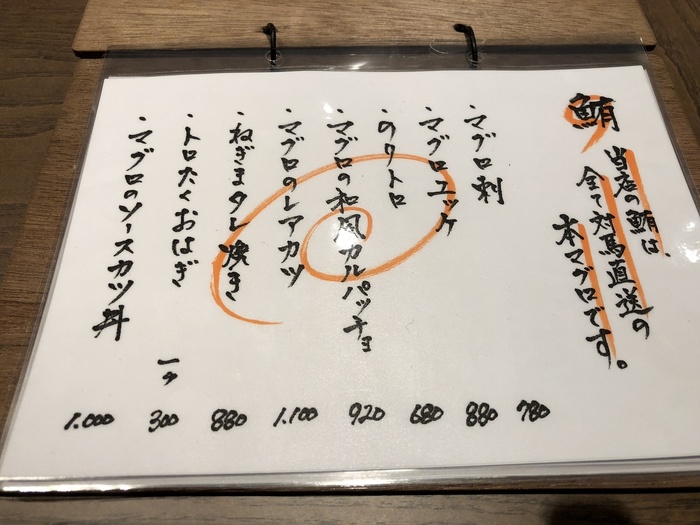 鮪
当店の鮪は、
全て対馬直送の
本マグロです。
・マグロ刺 780
・マグロユッケ 880
・のりトロ 680
・マグロの和風カルパッチョ 920
・マグロのレアカツ 1.100
・ねぎまタレ焼き 880
・トロたくおはぎ 一ヶ 300
・マグロのソースカツ丼 1.000